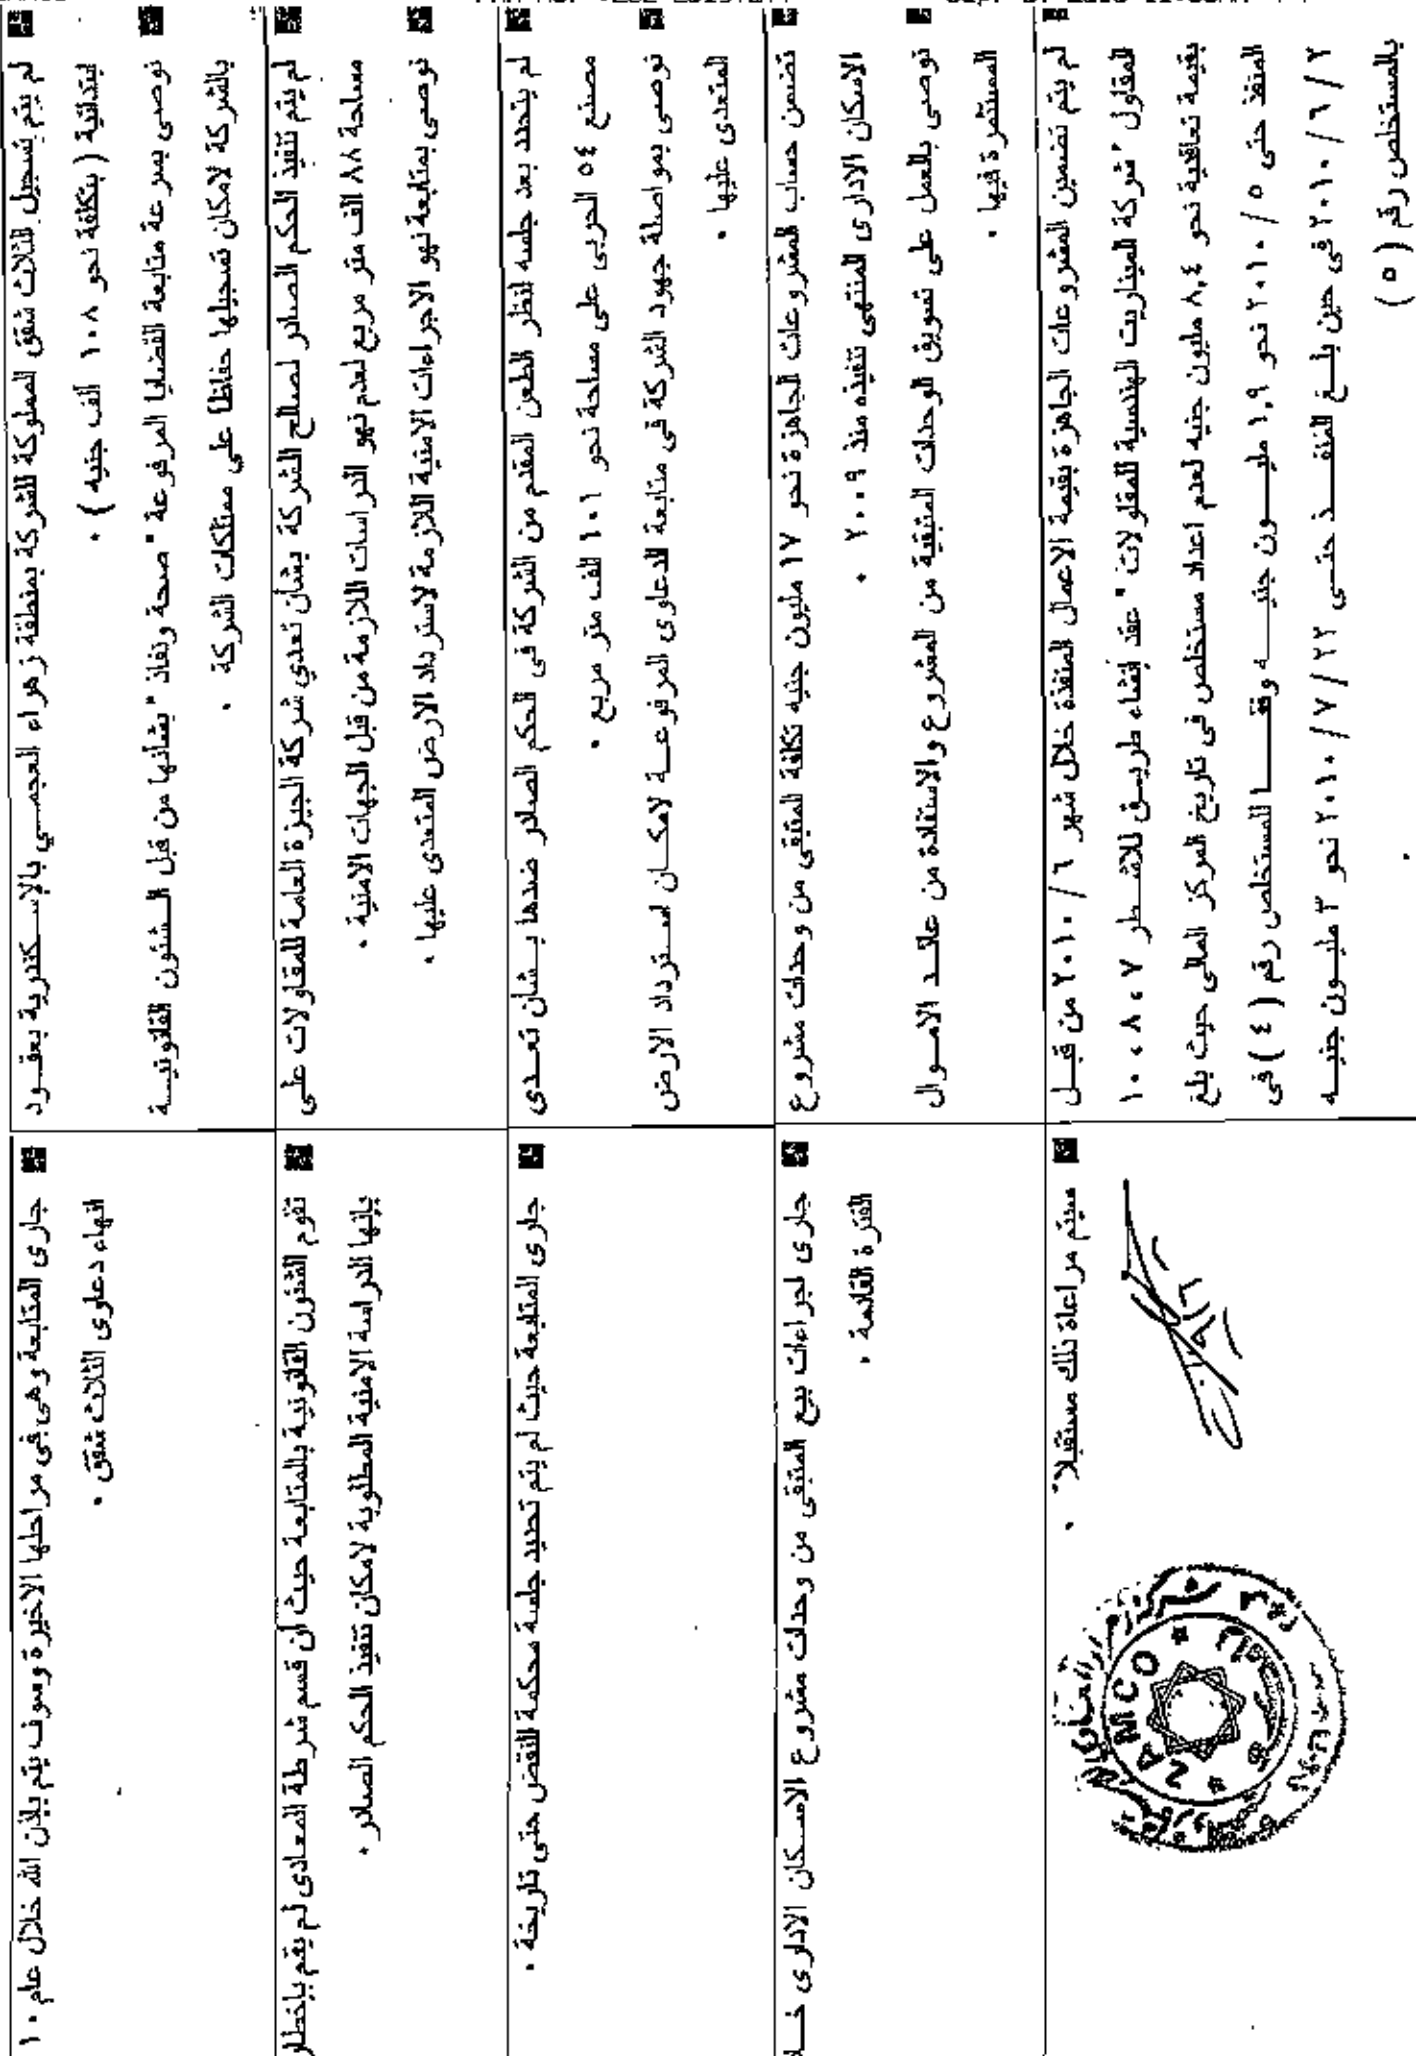 لم يتم تسجيل الثلاث شقق المملوكة للشركة بمنطقة زهراء العجمي بالإسكندرية بعقود
ابتدائية ( بتكلفة نحو ١٠٨ الف جنيه ) .
نوصى بسرعة متابعة القضايا المرفوعة " صحة ونفاذ " بشأنها من قبل الشئون القانونية
بالشركة لامكان تسجيلها حفاظا على ممتلكات الشركة .
جارى المتابعة وهى فى مراحلها الاخيرة وسوف يتم بإذن الله خلال عام ١٠
انهاء دعاوى الثلاث شقق .
لم يتم تنفيذ الحكم الصادر لصالح الشركة بشأن تعدي شركة الجيزة العامة للمقاولات على
مساحة ٨٨ الف متر مربع لعدم نهو الدراسات اللازمة من قبل الجهات الامنية .
نوصى بمتابعة نهو الاجراءات الامنية اللازمة لاسترداد الارض المتعدى عليها .
تقوم الشئون القانونية بالمتابعة حيث أن قسم شرطة المعادى لم يقم بإخطار
بإنهاء الدراسة الامنية المطلوبة لامكان تنفيذ الحكم الصادر .
لم يتحدد بعد جلسه لنظر الطعن المقدم من الشركة فى الحكم الصادر ضدها بشأن تعدى
مصنع ٥٤ الحربى على مساحة نحو ١٠١ الف متر مربع .
نوصى بمواصلة جهود الشركة فى متابعة الدعاوى المرفوعة لامكان استرداد الارض
المتعدى عليها .
جارى المتابعة حيث لم يتم تحديد جلسة محكمة النقض حتى تاريخة .
تضمن حساب المشروعات الجاهزة نحو ١٧ مليون جنيه تكلفة المتبقى من وحدات مشروع
الاسكان الادارى المنتهى تنفيذه منذ ٢٠٠٩ .
نوصى بالعمل على تسويق الوحدات المتبقية من المشروع والاستفادة من عائد الاموال
المستثمرة فيها .
جارى اجراءات بيع المتبقى من وحدات مشروع الاسكان الادارى خلا
الفترة القادمة .
لم يتم تضمين المشروعات الجاهزة بقيمة الاعمال المنفذة خلال شهر ٦ / ٢٠١٠ من قبل
المقاول " شركة الميناريت الهندسية للمقاولات " عقد إنشاء طريق للاشطار ٧ ، ٨ ، ١٠
بقيمة تعاقدية نحو ٨,٤ مليون جنيه لعدم اعداد مستخلص فى تاريخ المركز المالى حيث بلغ
المنفذ حتى ٥ / ٢٠١٠ نحو ١,٩ مليون جنيه وفقا للمستخلص رقم ( ٤ ) فى
٢ / ٦ / ٢٠١٠ فى حين بلغ المنفذ حتى ٢٢ / ٧ / ٢٠١٠ نحو ٣ مليون جنيه
بالمستخلص رقم ( ٥ )
سيتم مراعاة ذلك مستقبلا .
ZAMCO